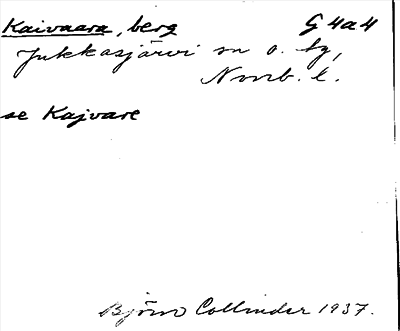 Kaivaara, berg G4a4
Jukkasjärvi sn o. tg,
Norrb. l.
se Kajvare
Björn Collinder 1937.